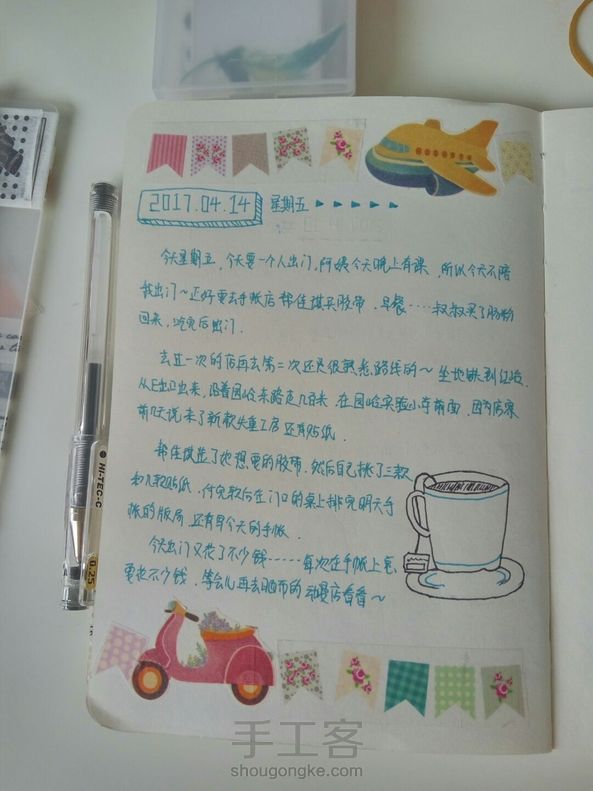 2017.04.14 星期五
今天星期五,今天要一个人出门,阿姨今天晚上有课,所以今天不陪
我出门~还好要去手帐店帮佳琪买胶带.早餐……叔叔买了肠粉
回来,吃完后出门.
去过一次的店再去第二次还是很熟悉路线的~坐地铁到红岭.
从E出口出来,沿着园岭东路走几百米,在园岭实验小学前面,因为店家
前几天说来了新款 还有贴纸.
帮佳琪选了她想要的胶带,然后自己挑了三款
和几款贴纸.付完款后在门口的桌上排完明天手
帐的版局.还有早今天的手帐.
今天出门又花了不少钱……每次在手帐上
要花不少钱.等会儿再去 的动漫店看看~
HI-TEC-C
0.25
手工客
shougongke.com